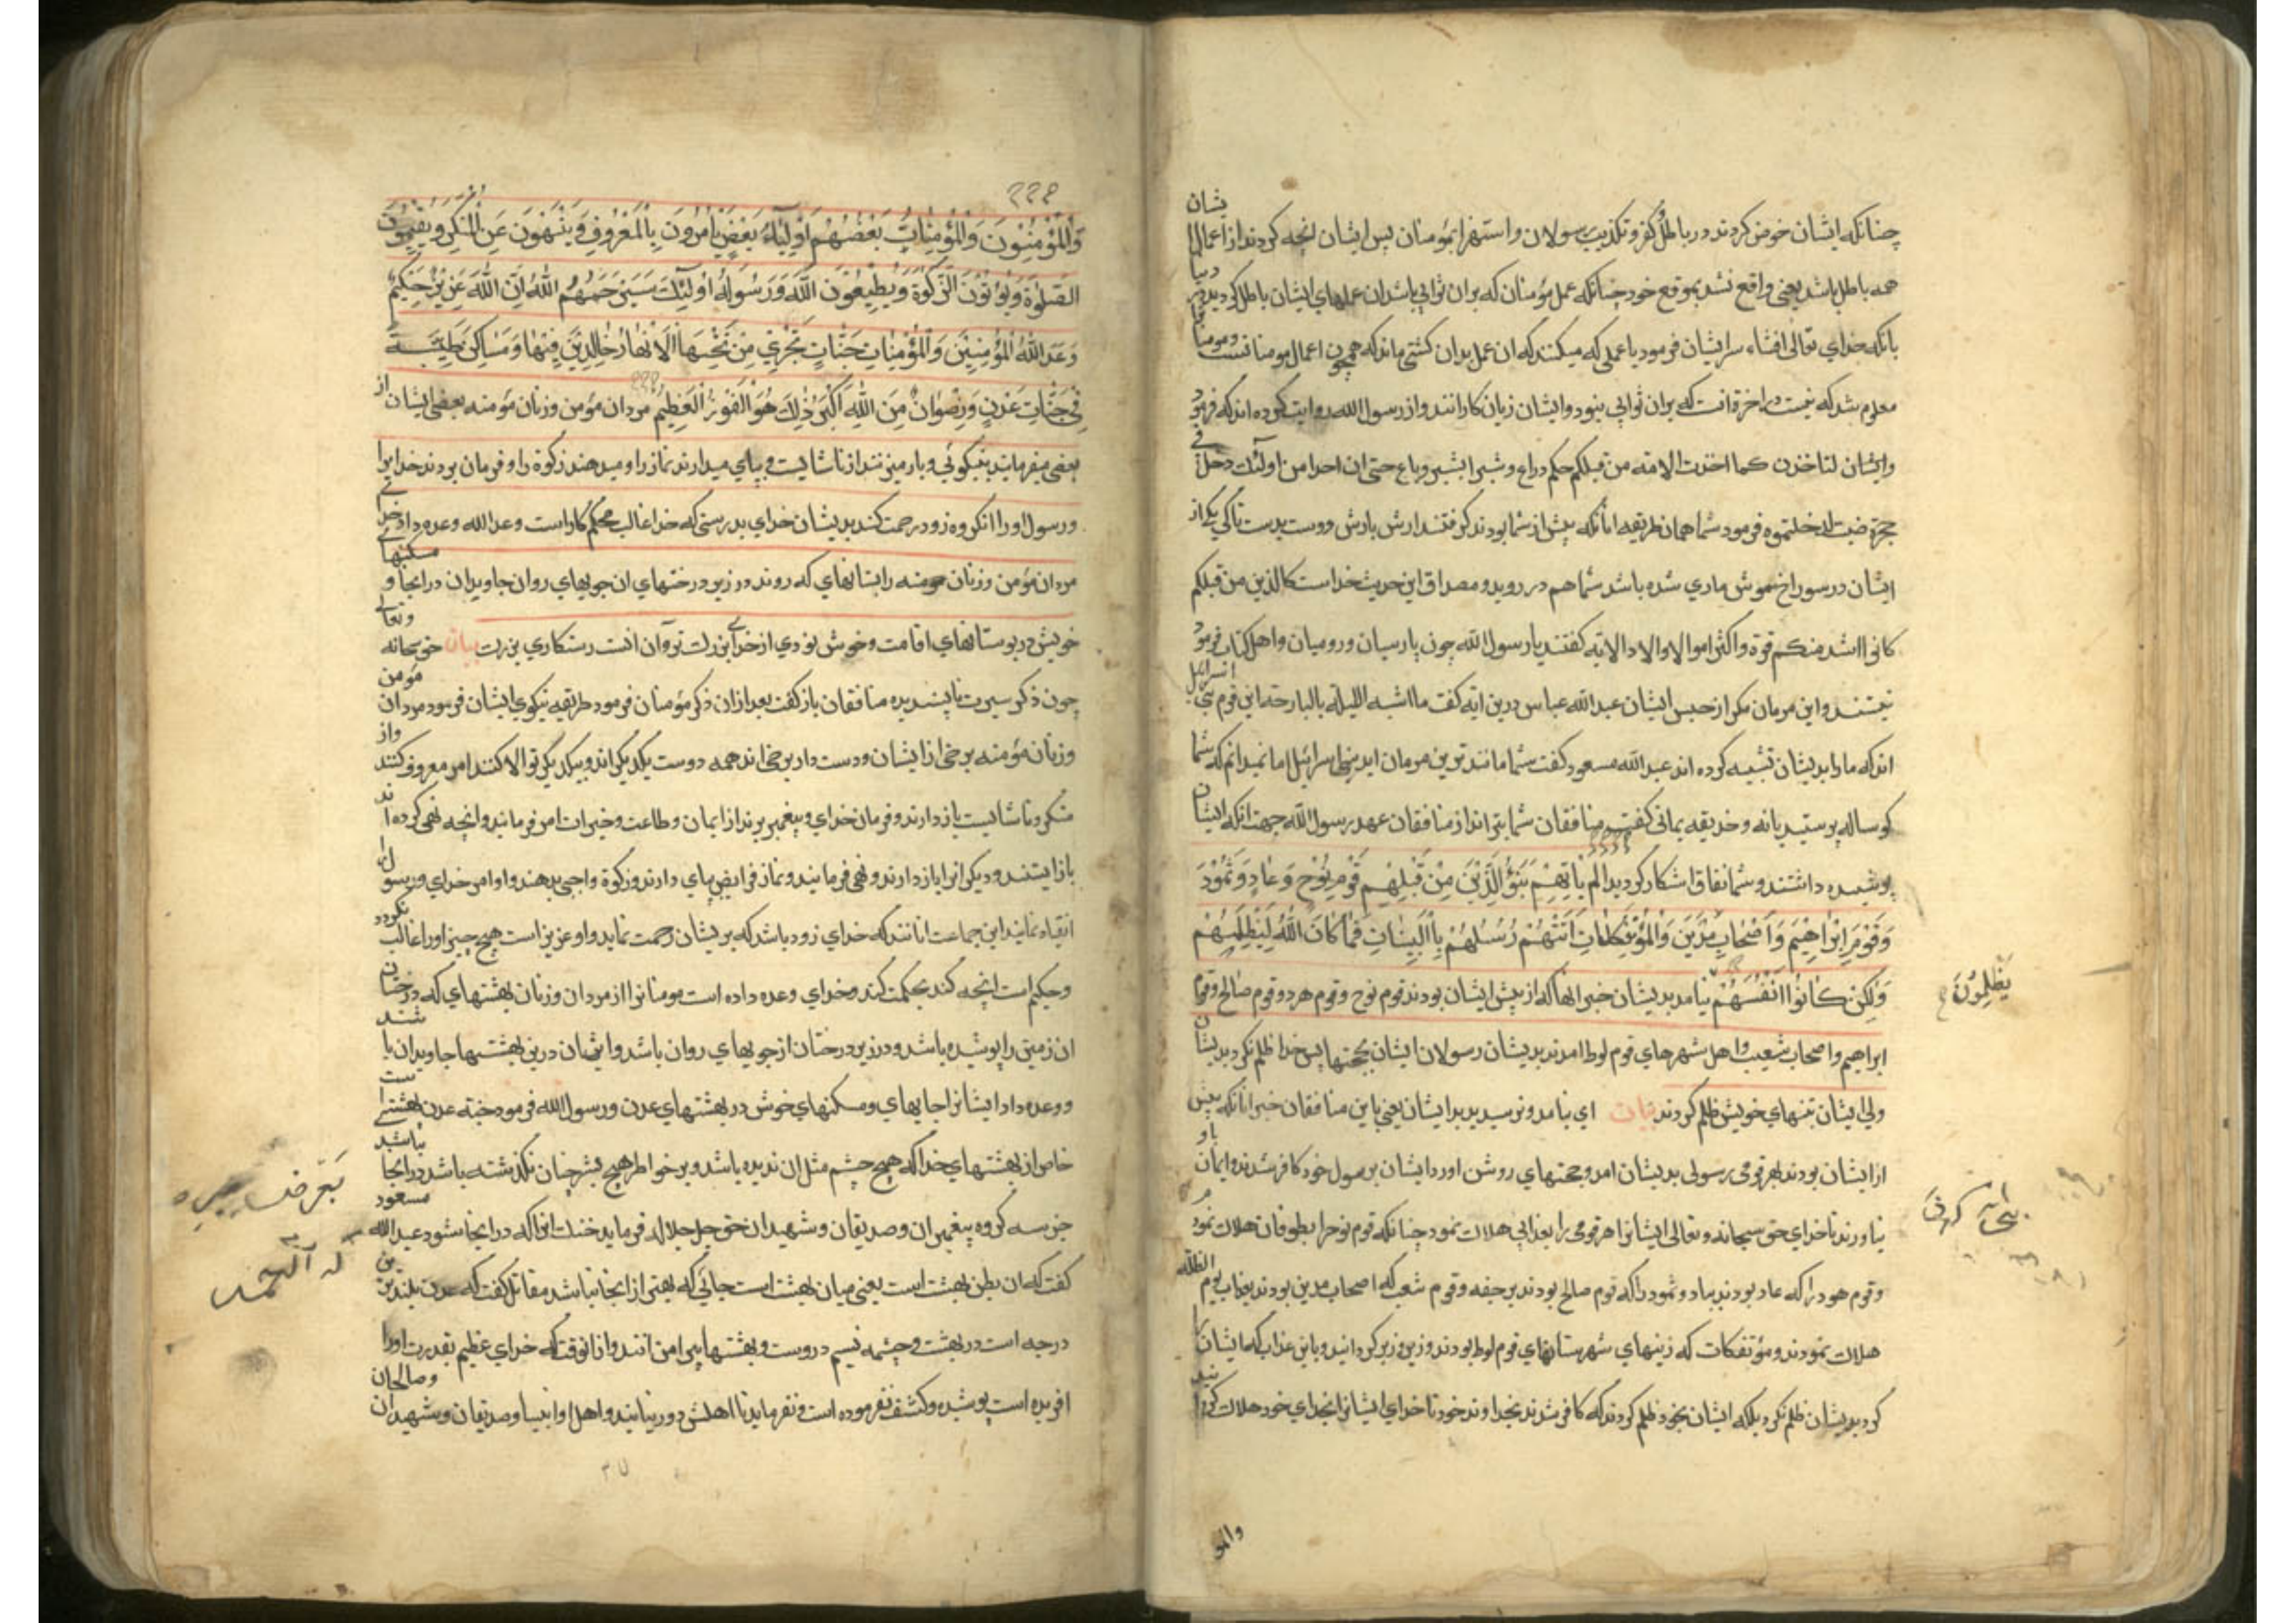 چنانکه ایشان خوض کردند در باطل و کفر و تکذیب رسولان و استهزا بمؤمنان پس ایشان انچه کردند از اعمال ایشان
همه باطل باشد یعنی واقع نشد بموقع خود چنانکه عمل مؤمنان که بران ثوابی باشد ان عملهای ایشان باطل کردید در دنیا
بانکه خدای تعالی افشاء سر ایشان فرمود یا عملی که میکنند که ان عمل بدان کشتی ماند که همچون اعمال مومنانست و مومنانرا
معلوم شد که نیست در اخرة انست که بران ثوابی نبود و ایشان زیان کارانند و از رسول الله روایت کرده اند که فرمود
وایشان لتاخذن کما اخذت الامة من قبلکم حکم ذراع و شبرا بشبر و باع حتی ان احدا من اولئک دخل فی
حجرة ضب لدخلتموه فرمود شما همان طریقه انانکه پیش از شما بودند کرفتند ارش بارش و دست بدست تا کی یکی از
ایشان در سوراخ موش ماری شده باشد شما هم در روید و مصداق این حدیث خداست کالذین من قبلکم
کانوا اشد منکم قوة و اکثر اموالا و اولادا الایه کفتند یا رسول الله چون پارسیان و رومیان و اهل کتاب فرمود
نیستند و این مردمان مکر از جنس ایشان عبد الله عباس درین ایه کفت ما اشبه اللیلة بالبارحة این قوم بنی اسرائیل
اند که ما را بدیشان تشبیه کرده اند عبد الله مسعود کفت شما مانند ترین مردمان اید ببنی اسرائیل اما نمیدانم که شما
کوساله پرستید یا نه و حذیفه یمانی کفت منافقان شما بتر اند از منافقان عهد رسول الله جهت انکه ایشان
پوشیده داشتند و شما نفاق اشکار کردید الم یاتهم نبؤ الذین من قبلهم قوم نوح و عاد و ثمود
و قوم ابراهیم و اصحاب مدین و المؤتفکات اتتهم رسلهم بالبینات فما کان الله لیظلمهم
ولکن کانوا انفسهم نیامد بدیشان خبر انها که از پیش ایشان بودند قوم نوح و قوم هود و قوم صالح و قوم
یظلمون
ابراهیم و اصحاب شعیب و اهل شهرهای قوم لوط امدند بدیشان رسولان ایشان بحجتها پس خدا ظلم نکرد بدیشان
ولی ایشان بتنهای خویش ظلم کردند بیان ای نیامد و نرسید بدیشان یعنی باین منافقان خبر انانکه پیش
از ایشان بودند بهر قومی رسولی بدیشان امد و حجتهای روشن اورد ایشان برسول خود کافر شدند و ایمان باو
نیاوردند تا خدای حق سبحانه و تعالی ایشانرا هر قومی را بعذابی هلاک نمود چنانکه قوم نوح را بطوفان هلاک نمود
و قوم هود را که عاد بودند بباد و ثمود را که قوم صالح بودند برجفه و قوم شعیب که اصحاب مدین بودند بعذاب یوم الظله
هلاک نمودند و مؤتفکات که زمینهای شهرستانهای قوم لوط بودند و زیر و زبر کردانید و باین عذاب که ایشانرا
کرد بدیشان ظلم نکرد بلکه ایشان بخود ظلم کردند که کافر شدند بخداوند خود تا خدای ایشانرا بجزای خود هلاک کردانید
والمؤ
وَالْمُؤْمِنُونَ وَالْمُؤْمِنَاتُ بَعْضُهُمْ اَوْلِیَاءُ بَعْضٍ یَاْمُرُونَ بِالْمَعْرُوفِ وَیَنْهَوْنَ عَنِ الْمُنْکَرِ وَیُقِیمُونَ
الصَّلٰوةَ وَیُؤْتُونَ الزَّکٰوةَ وَیُطِیعُونَ اللّٰهَ وَرَسُولَهُ اُولٰئِکَ سَیَرْحَمُهُمُ اللّٰهُ اِنَّ اللّٰهَ عَزِیزٌ حَکِیمٌ
وَعَدَ اللّٰهُ الْمُؤْمِنِینَ وَالْمُؤْمِنَاتِ جَنَّاتٍ تَجْرِی مِنْ تَحْتِهَا الْاَنْهَارُ خَالِدِینَ فِیهَا وَمَسَاکِنَ طَیِّبَةً
فِی جَنَّاتِ عَدْنٍ وَرِضْوَانٌ مِنَ اللّٰهِ اَکْبَرُ ذٰلِکَ هُوَ الْفَوْزُ الْعَظِیمُ مردان مؤمن و زنان مؤمنه بعضی ایشان از
بعضی میفرمایند بنیکوئی و باز میزنند از ناشایست و بپای میدارند نماز را و میدهند زکوة را و فرمان بردند خدایرا
و رسول او را انکروه زود رحمت کند بدیشان خدای بدرستی که خدا غالب محکم کار است وعد الله وعده داد خدای
مردان مؤمن و زنان مومنه را بستانهای که روند در زیر درختهای ان جویهای روان جاویدان در انجا و مسکنهای
خویش در بوستانهای اقامت و خوش نودی از خدای بزرک تر آن انست رستکاری بزرک بیان حق سبحانه و تعالی
چون ذکر سیرت ناپسندیده منافقان باز کفت بعد ازان ذکر مؤمنان فرمود طریقه نیکوی ایشان فرمود مردان مؤمن
و زنان مؤمنه برخی از ایشان ودست دار برخی اند همه دوست یکدیکر اند و بیکدیکر توالا کنند امر معروف کنند واز
منکر و ناشایست بازدارند و فرمان خدای و پیغمبر برند از ایمان و طاعت و خیرات امر فرمایند و انچه نهی کرده اند
باز ایستند و دیکرانرا بازدارند و نهی فرمایند و نماز فرایض بپای دارند و زکوة واجبی بدهند و اوامر خدای و رسول را
انقیاد نمایند این جماعت انانند که خدای زود باشد که بریشان رحمت نماید و او عزیز است هیچ چیز او را غالب نکردد
و حکیم است انچه کند بحکمت کند و خدای وعده داده است مومنانرا از مردان و زنان بهشتهای که درختان
ان زمین را پوشیده باشد و در زیر درختان از جویهای روان باشد و ایشان درین بهشتها جاویدان باشند
و وعده داد ایشانرا جایهای و مسکنهای خوش در بهشتهای عدن و رسول الله فرمود جنة عدن بهشتی است
خاص از بهشتهای خدا که هیچ چشم مثل ان ندیده باشد و بر خواطر هیچ بشر چنان نکذشته باشد در انجا نباشد
جز سه کروه پیغمبران و صدیقان و شهیدان حق جل جلاله فرماید خنک انرا که در انجا شود عبد الله مسعود
کفت که ان بطن بهشت است یعنی میان بهشت است جائی که بهتر از انجا نباشد مقاتل کفت که عدن بلندترین
درجه است در بهشت و چشمه تسنیم دروست و بهشتها پیرامن انند و از انوقت که خدای عظیم بقدرت او را
افریده است پوشیده و کشف نفرموده است و نفرماید تا اهلش دور نیایند و اهل او انبیا و صدیقان و شهیدان و صالحان